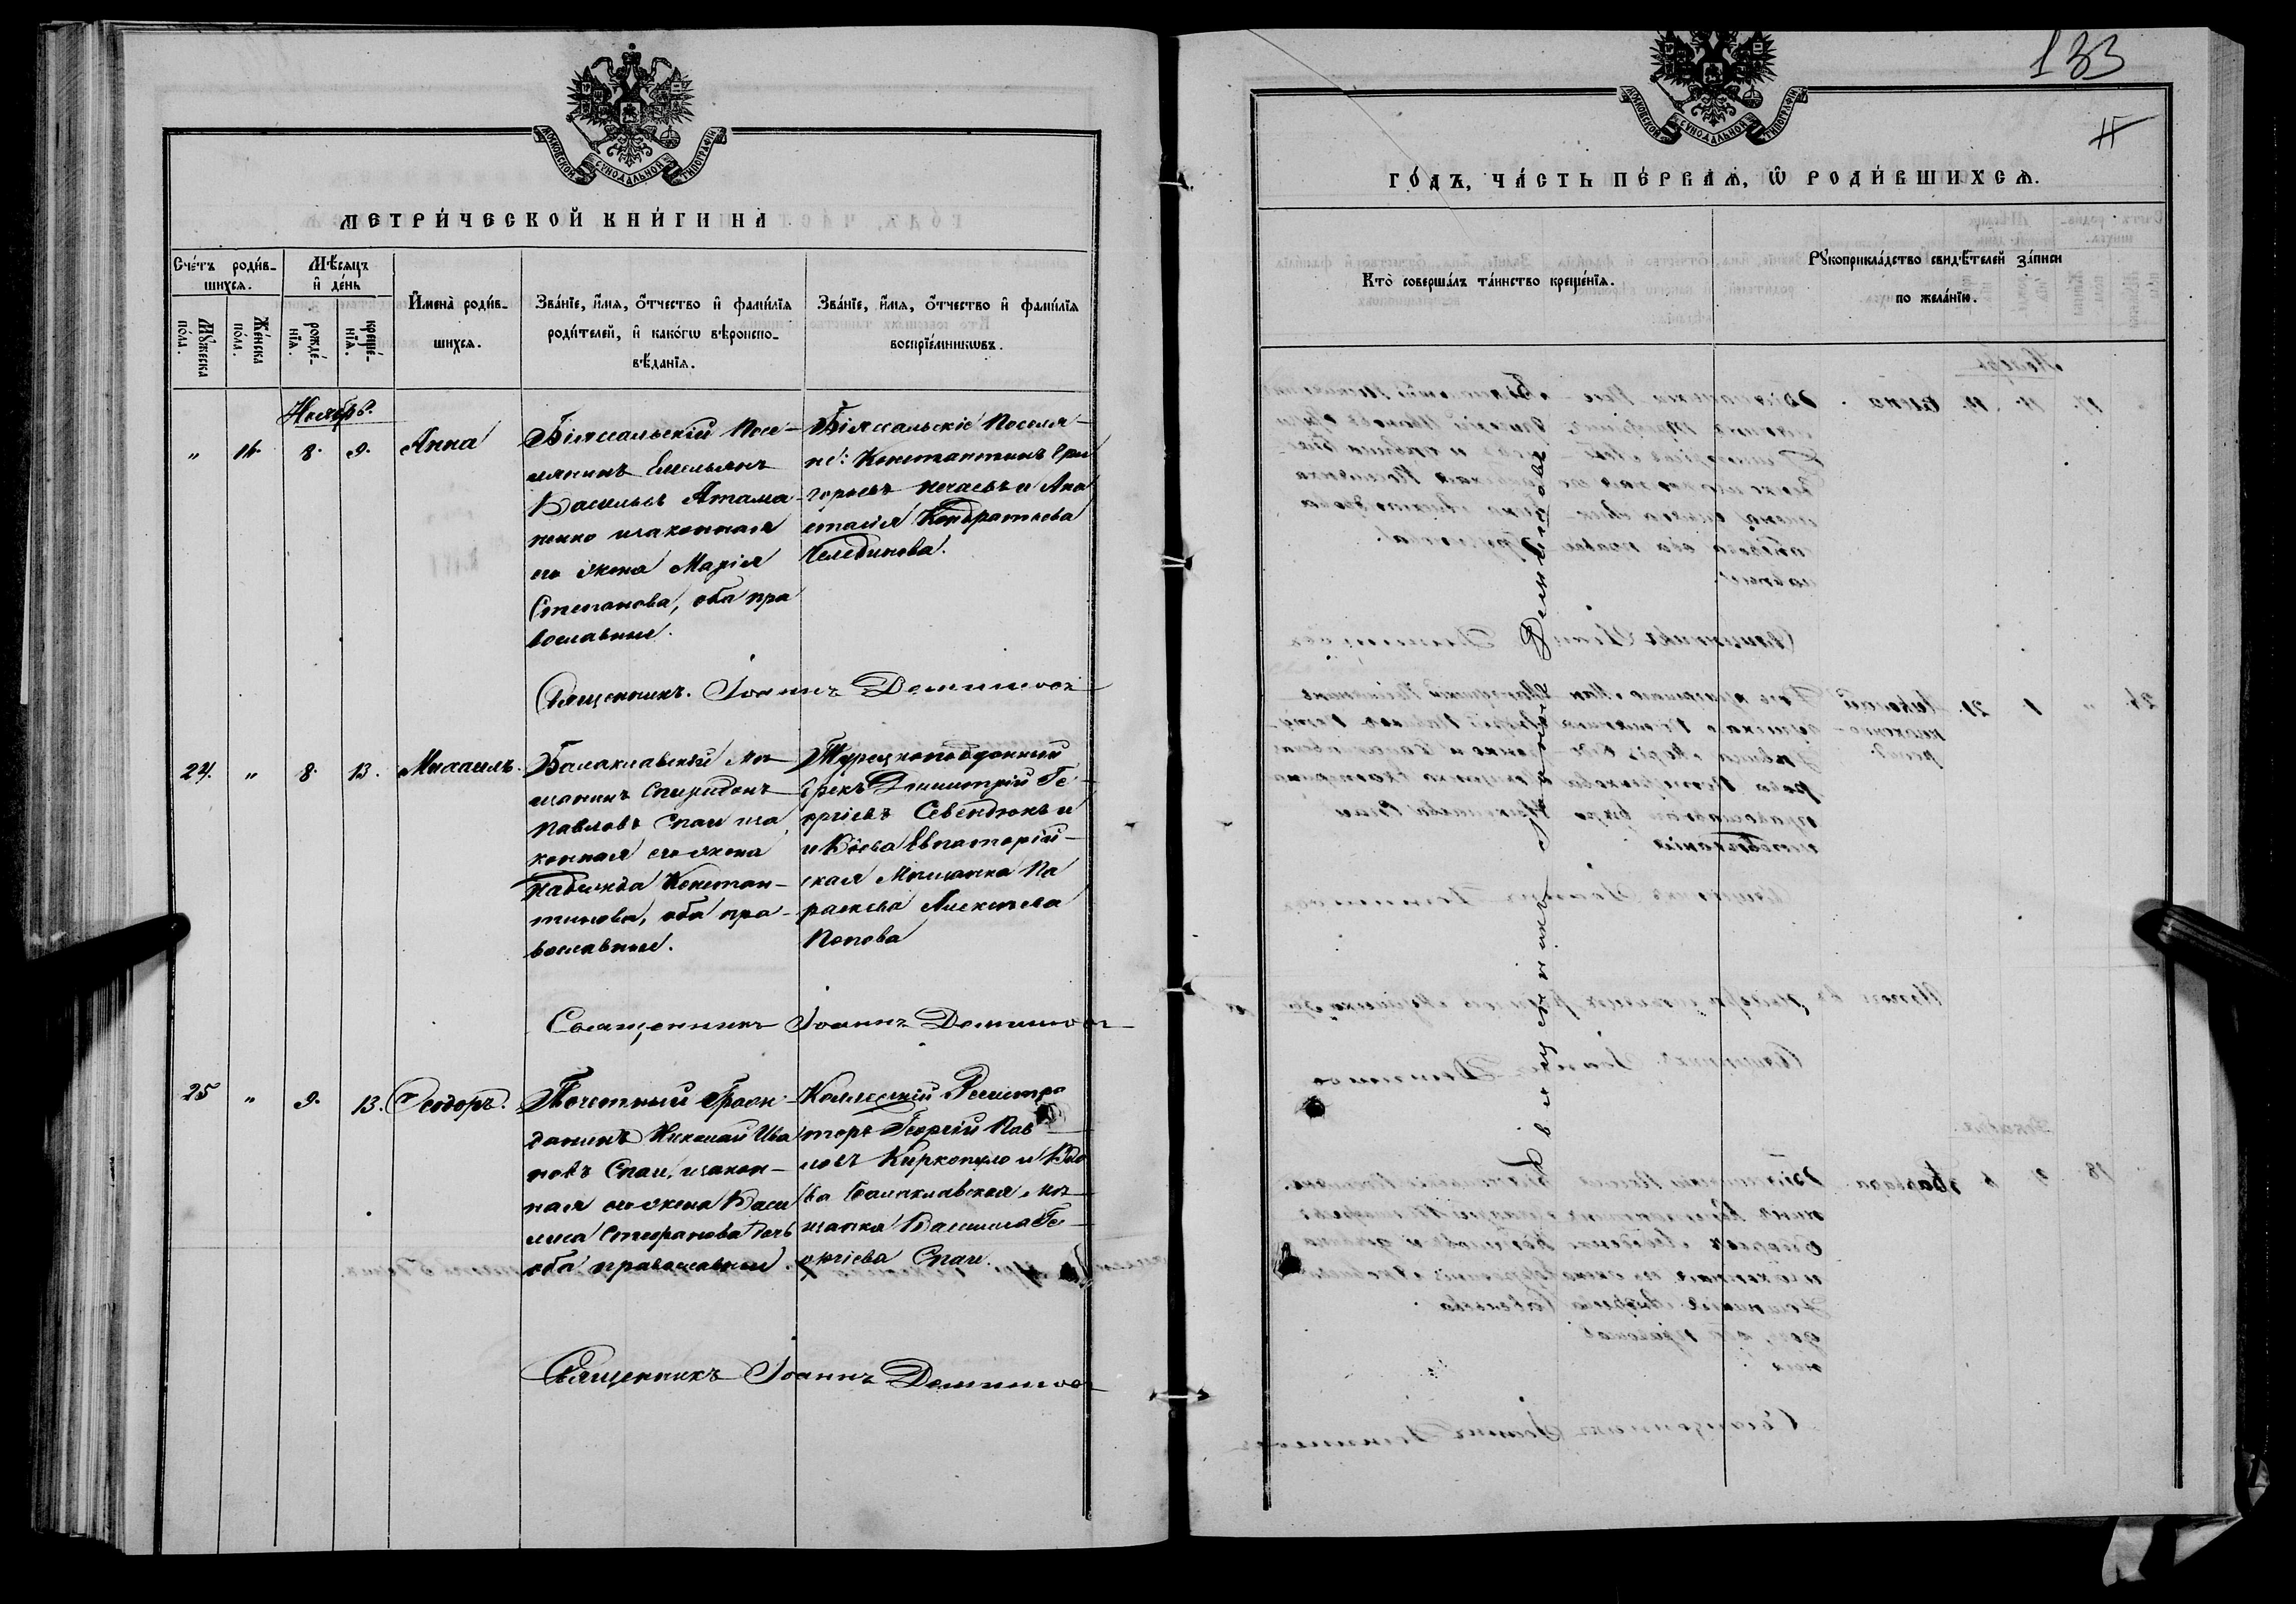 МОСКОВСКОЙ СУНОДАЛЬНОЙ ТИПОГРАФІИ
МЕТРИ́ЧЕСКОЙ КНИ́ГИ НА
Сче́тъ роди́в-
шихсѧ.
Мѣ́сѧцъ
и҆ де́нь
Мꙋ́жеска по́ла.
Же́нска по́ла.
рожде́-
нїѧ.
креще́-
нїѧ.
И҆мена̀ роди́в-
шихсѧ.
Зва́нїе, и҆́мѧ, ѻ҆́тчество и҆ фами́лїѧ
роди́телей, и҆ како́гѡ вѣроиспо-
вѣ́данїѧ.
Зва́нїе, и҆́мѧ, ѻ҆́тчество и҆ фами́лїѧ
воспрїе́мникѡвъ.
Ноябрь.
„ 16. 8. 9. Анна
Біясальскій Посе-
лянинъ Емельянъ
Васильевъ Атама-
ненко и законная
его жена Марія
Степанова, оба пра
вославные.
Біясальскіе Поселя-
не: Константинъ Гри
горьевъ Нечаевъ и Ана
стасія Кондратьева
Челединова.
Священникъ Іоаннъ Демишовъ
24. „ 8. 13. Михаилъ.
Балаклавскій Мѣ-
щанинъ Спиридонъ
Павловъ Спаи и за
конная его жена
Надежда Констан-
тинова, оба пра-
вославные.
Турецкоподданный
Грекъ Димитрій Ге-
оргіевъ Севендюкъ и
Вдова Евпаторій-
ская Мѣщанка Па
раскева Алексѣева
Попова
Священникъ Іоаннъ Демишовъ
25 „ 9. 13. Ѳеодоръ.
Почетный Граж-
данинъ Николай Ива
новъ Спаи, и закон-
ная его жена Васи
лиса Стефанова
оба православные
Коллежскій Регистра
торъ Георгій Пав
ловъ Киркопуло и Вдо
ва Балаклавская Мѣ-
щанка Василиса Ге-
оргіева Спаи.
Священникъ Іоаннъ Демишовъ
133
МОСКОВСКОЙ СУНОДАЛЬНОЙ ТИПОГРАФІИ
ГО́ДЪ, ЧА́СТЬ ПЕ́РВАѦ, Ѽ РОДИ́ВШИХСѦ.
Кто̀ соверша́лъ та́инство креще́нїѧ.
Рꙋкоприкла́дство свидѣ́телей за́писи
по жела́нїю.
Священникъ Іоаннъ Демишовъ